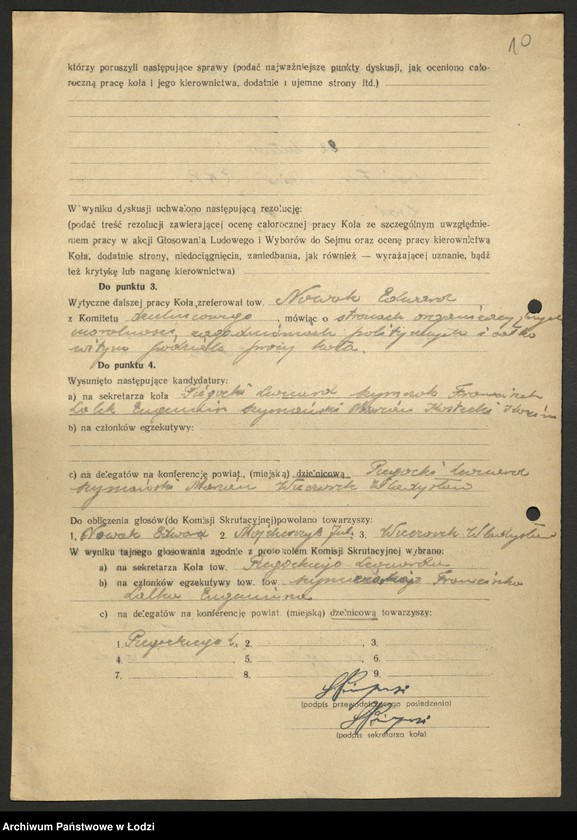 10
którzy poruszyli następujące sprawy (podać najważniejsze punkty dyskusji, jak oceniono cało-
roczną pracę koła i jego kierownictwa, dodatnie i ujemne strony itd.)
W wyniku dyskusji uchwalono następującą rezolucję:
(podać treść rezolucji zawierającej ocenę całorocznej pracy Koła ze szczególnym uwzględnie-
niem pracy w akcji Głosowania Ludowego i Wyborów do Sejmu oraz ocenę pracy kierownictwa
Koła, dodatnie strony, niedociągnięcia, zaniedbania, jak również — wyrażającej uznanie, bądź
też krytykę lub naganę kierownictwa)
Do punktu 3.
Wytyczne dalszej pracy Koła zreferował tow. Nowak Edward
z Komitetu dzielnicowego, mówiąc o stronach organizacyjnych
moralności, zagadnieniach politycznych i
podziału pracy koła.
Do punktu 4.
Wysunięto następujące kandydatury:
a) na sekretarza koła Leonard Franciszek
Lalek Eugeniusz Szymański Marian Kostecki
b) na członków egzekutywy:
c) na delegatów na konferencję powiat., (miejską) dzielnicową Leonard
Szymański Marian Wieczorek Władysław
Do obliczenia głosów(do Komisji Skrutacyjnej)powołano towarzyszy:
1. Nowak Edward 2. 3. Wieczorek Władysław
W wyniku tajnego głosowania zgodnie z protokołem Komisji Skrutacyjnej wybrano:
a) na sekretarza Koła tow. Leonarda
b) na członków egzekutywy tow. tow. Franciszka
Lalka Eugeniusza
c) na delegatów na konferencję powiat. (miejską) dzielnicową towarzyszy:
1. 2. 3.
4. 5. 6.
7. 8. 9.
(podpis przewodniczącego posiedzenia)
(podpis sekretarza koła)
Archiwum Państwowe w Łodzi